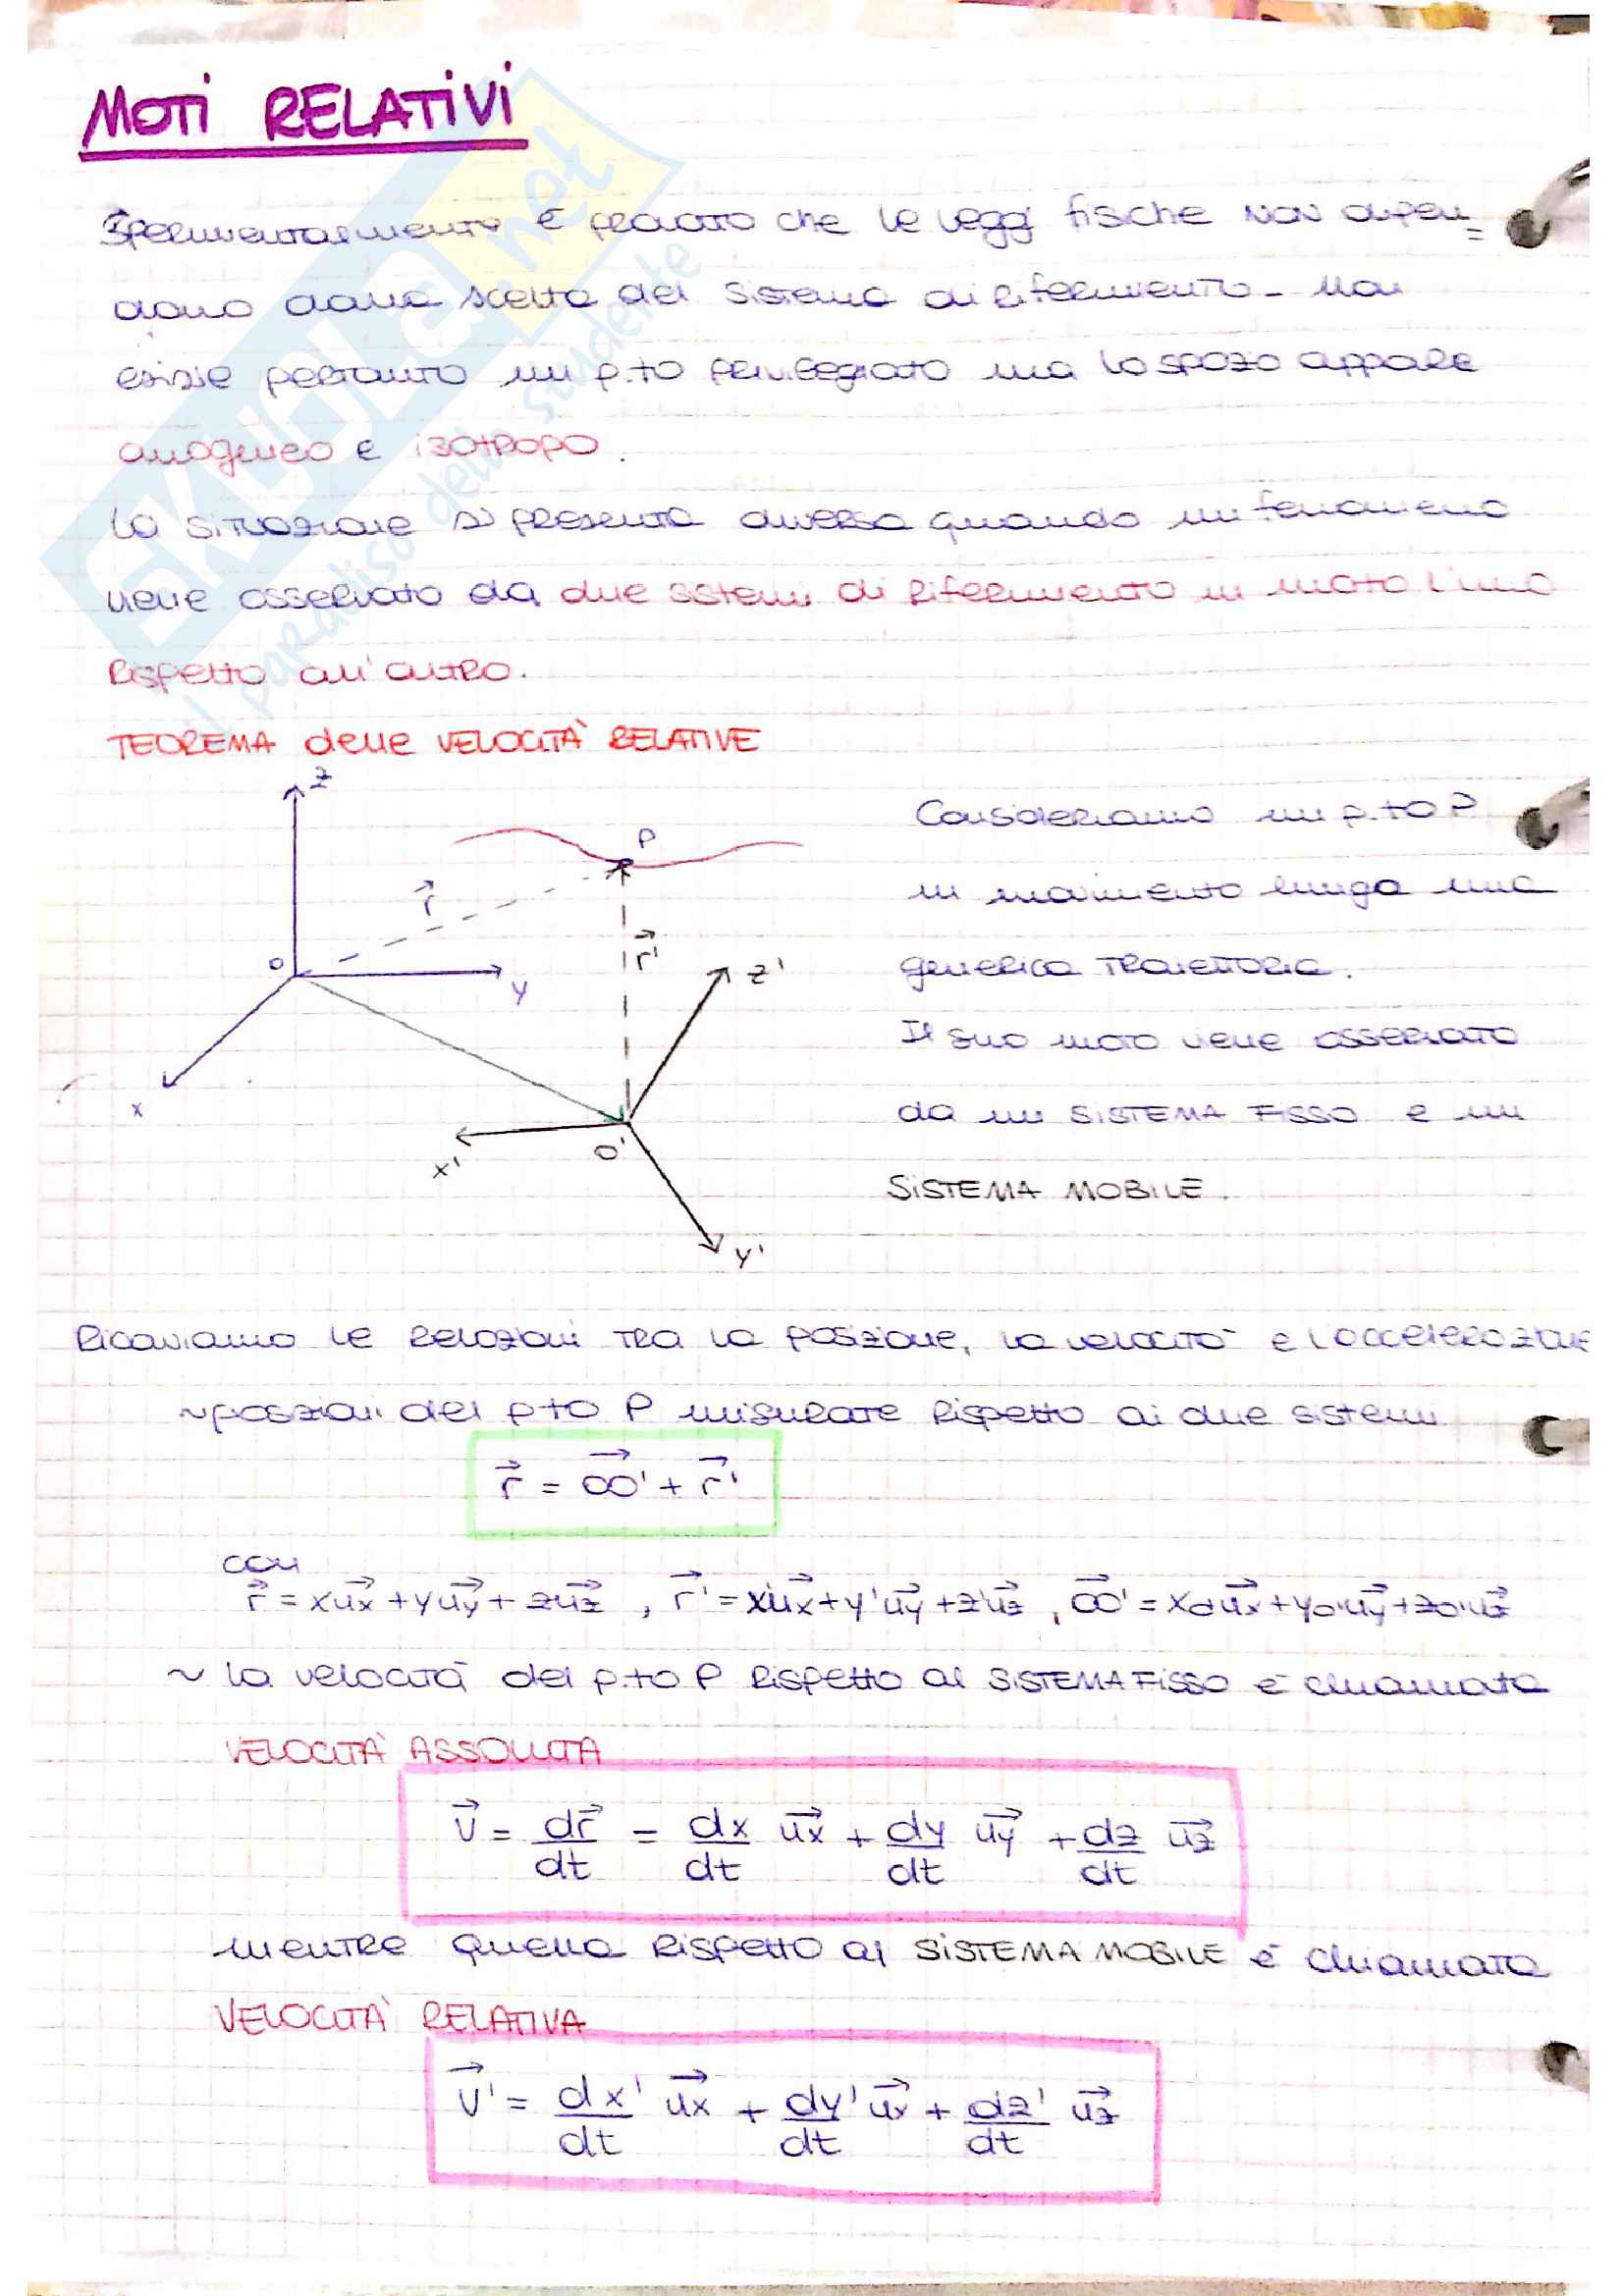 MOTI RELATIVI
Sperimentalmente è provato che le leggi fisiche NON dipen=
dono dalla scelta del sistema di riferimento. Non
esiste pertanto un p.to privilegiato ma lo spazio appare
omogeneo e isotropo.
La situazione si presenta diversa quando un fenomeno
viene osservato da due sistemi di riferimento in moto l'uno
rispetto all'altro.
TEOREMA delle VELOCITÀ RELATIVE
z
P
Consideriamo un p.to P
r⃗
in movimento lungo una
r⃗'
O
y
z'
generica traiettoria.
Il suo moto viene osservato
x
da un SISTEMA FISSO e un
x'
O'
SISTEMA MOBILE.
y'
Ricaviamo le relazioni tra la posizione, la velocità e l'accelerazione
~posizioni del p.to P misurate rispetto ai due sistemi
r⃗ = OO'⃗ + r⃗'
con
r⃗ = xu⃗x + yu⃗y + zu⃗z , r⃗' = x'u⃗x + y'u⃗y + z'u⃗z , OO'⃗ = xo'u⃗x + yo'u⃗y + zo'u⃗z
~ la velocità del p.to P rispetto al SISTEMA FISSO è chiamata
VELOCITÀ ASSOLUTA
v⃗ = dr⃗/dt = dx/dt u⃗x + dy/dt u⃗y + dz/dt u⃗z
mentre quella rispetto al SISTEMA MOBILE è chiamata
VELOCITÀ RELATIVA
v⃗' = dx'/dt u⃗x + dy'/dt u⃗y + dz'/dt u⃗z
SKUOLA.net
il paradiso dello studente